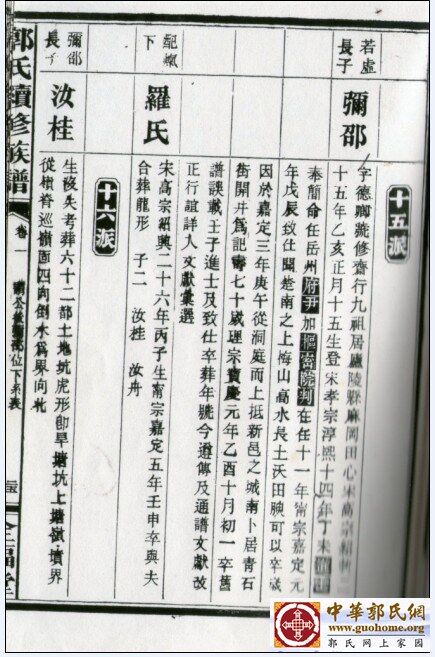 十五派
若虛長子
彌邵
字德卿號修齋行九祖居廬陵縣麻岡田心宋高宗紹興二
十五年乙亥正月十五生登宋孝宗淳熙十四年丁未進士
奉簡命任岳州府尹加樞密院判在任十一年甯宗嘉定元
年戊辰致仕聞楚南之上梅山高水長土沃田腴可以卒歲
因於嘉定三年庚午從洞庭而上抵新邑之城南卜居青石
街開井為記壽七十歲理宗寶慶元年乙酉十月初一卒舊
譜誤載壬子進士及致仕卒葬年號今遵傳及通譜文獻改
正行誼詳人文獻彙選
配
下
羅氏
宋高宗紹興二十六年丙子生甯宗嘉定五年壬申卒與夫
合葬龍形 子二 汝桂 汝舟
十六派
彌邵長子
汝桂
生歿失考葬六十二都土地坑虎形即早塘坑上塘嶺墳界
從嶺脊巡嶺面四向倒水為界向北
郭氏續修族譜
卷一
位下系表
全福堂
中華郭氏網
www.guohome.org
郭氏网上家园